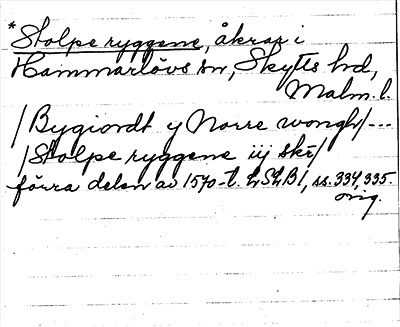 *Stolpe ryggene, åkrar i
Hammarlövs sn, Skytts hd,
Malm. l.
/Bygiordt y Norre wongh/---
/Stolpe ryggene iij skr/
förra delen av 1570-t. LSLB1, ss. 334, 335.
orig.